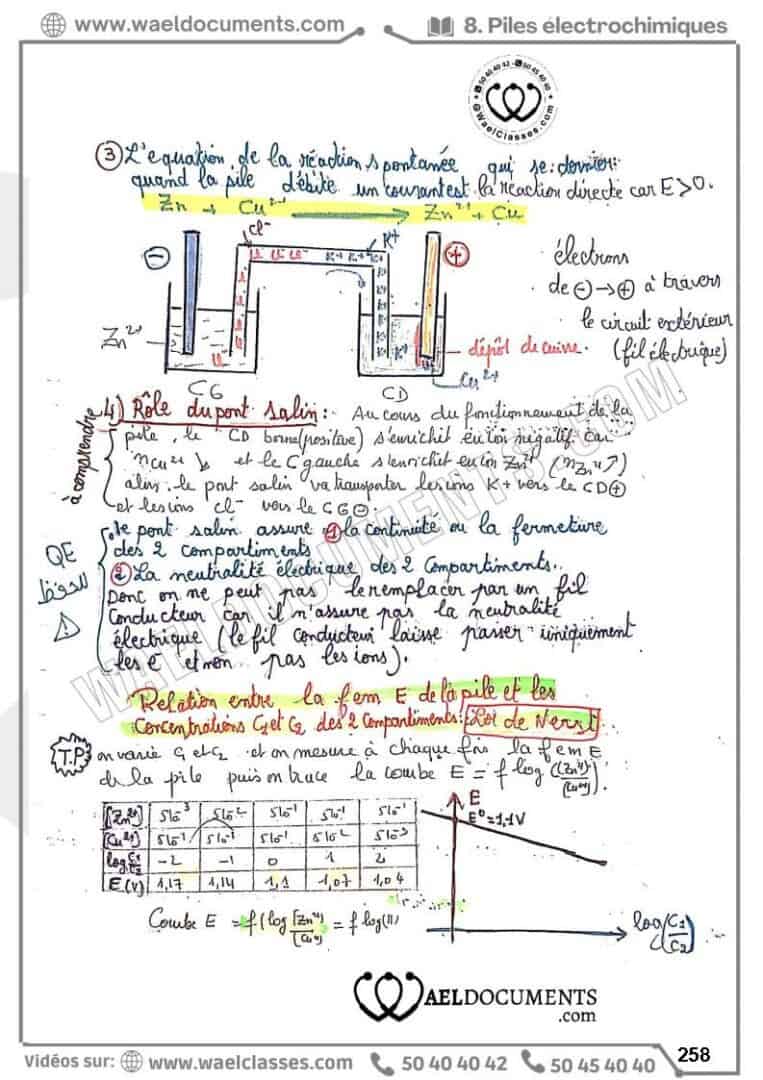 www.waeldocuments.com
8. Piles électrochimiques
50 40 40 42 - 50 45 40 40
@WaelClasses.com
③ L'equation de la réaction spontanée qui se
quand la pile débite un courant est la réaction directe car E>0.
Zn + Cu²⁺ → Zn²⁺ + Cu
Cl⁻
K+
⊖
⊕
électrons
de ⊖→⊕ à travers
le circuit extérieur
(fil électrique)
Zn²⁺
dépôt de cuivre.
Cu²⁺
CG
CD
à comprendre
4) Rôle du pont salin: Au cours du fonctionnement de la
pile, le CD borne (positive) s'enrichit en ion négatif car
nCu²⁺ ↘ et le C gauche s'enrichet en ion Zn²⁺ (nZn²⁺↗)
alors le pont salin va transporter les ions K+ vers le CD⊕
et les ions cl⁻ vers le CG⊖.
QE
للحفظ
⚠
le pont salin assure ① la continuité ou la fermeture
des 2 compartiments
② La neutralité électrique des 2 compartiments.
Donc on ne peut pas le remplacer par un fil
conducteur car il n'assure pas la neutralité
électrique (le fil conducteur laisse passer uniquement
les e⁻ et non pas les ions).
Relation entre la fem E de la pile et les
Concentrations C1 et C2 des 2 compartiments: Loi de Nerst
T.P on varie C1 et C2 et on mesure à chaque fois la fem E
de la pile puis on trace la combe E = f log ([Zn²⁺]/[Cu²⁺]).
[Zn²⁺] 5 10⁻³ 5 10⁻² 5 10⁻¹ 5 10⁻¹ 5 10⁻¹
[Cu²⁺] 5 10⁻¹ 5 10⁻¹ 5 10⁻¹ 5 10⁻² 5 10⁻³
log C1/C2 -2 -1 0 1 2
E(V) 1,17 1,14 1,1 1,07 1,04
E
E⁰=1,1V
log(C1/C2)
Combe E = f(log [Zn²⁺]/[Cu²⁺] = f log(π)
WAELDOCUMENTS.COM
WAELDOCUMENTS
.com
Vidéos sur: www.waelclasses.com 50 40 40 42 50 45 40 40
258